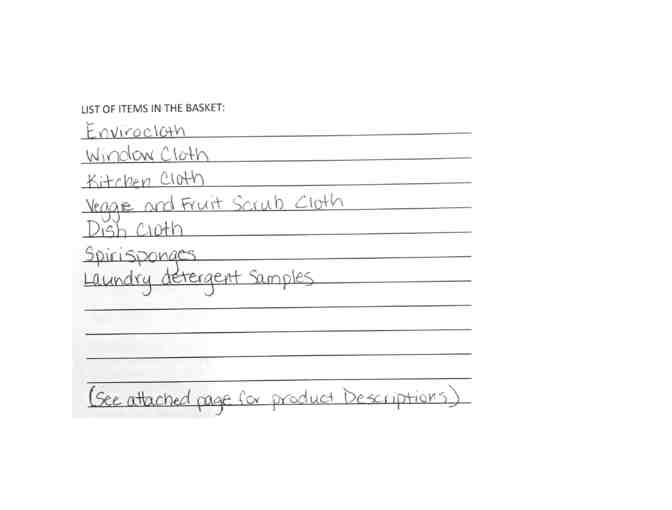 LIST OF ITEMS IN THE BASKET:
Envirocloth
Window Cloth
Kitchen Cloth
Veggie and Fruit Scrub Cloth
Dish Cloth
Spirisponges
Laundry detergent Samples
(See attached page for product Descriptions)